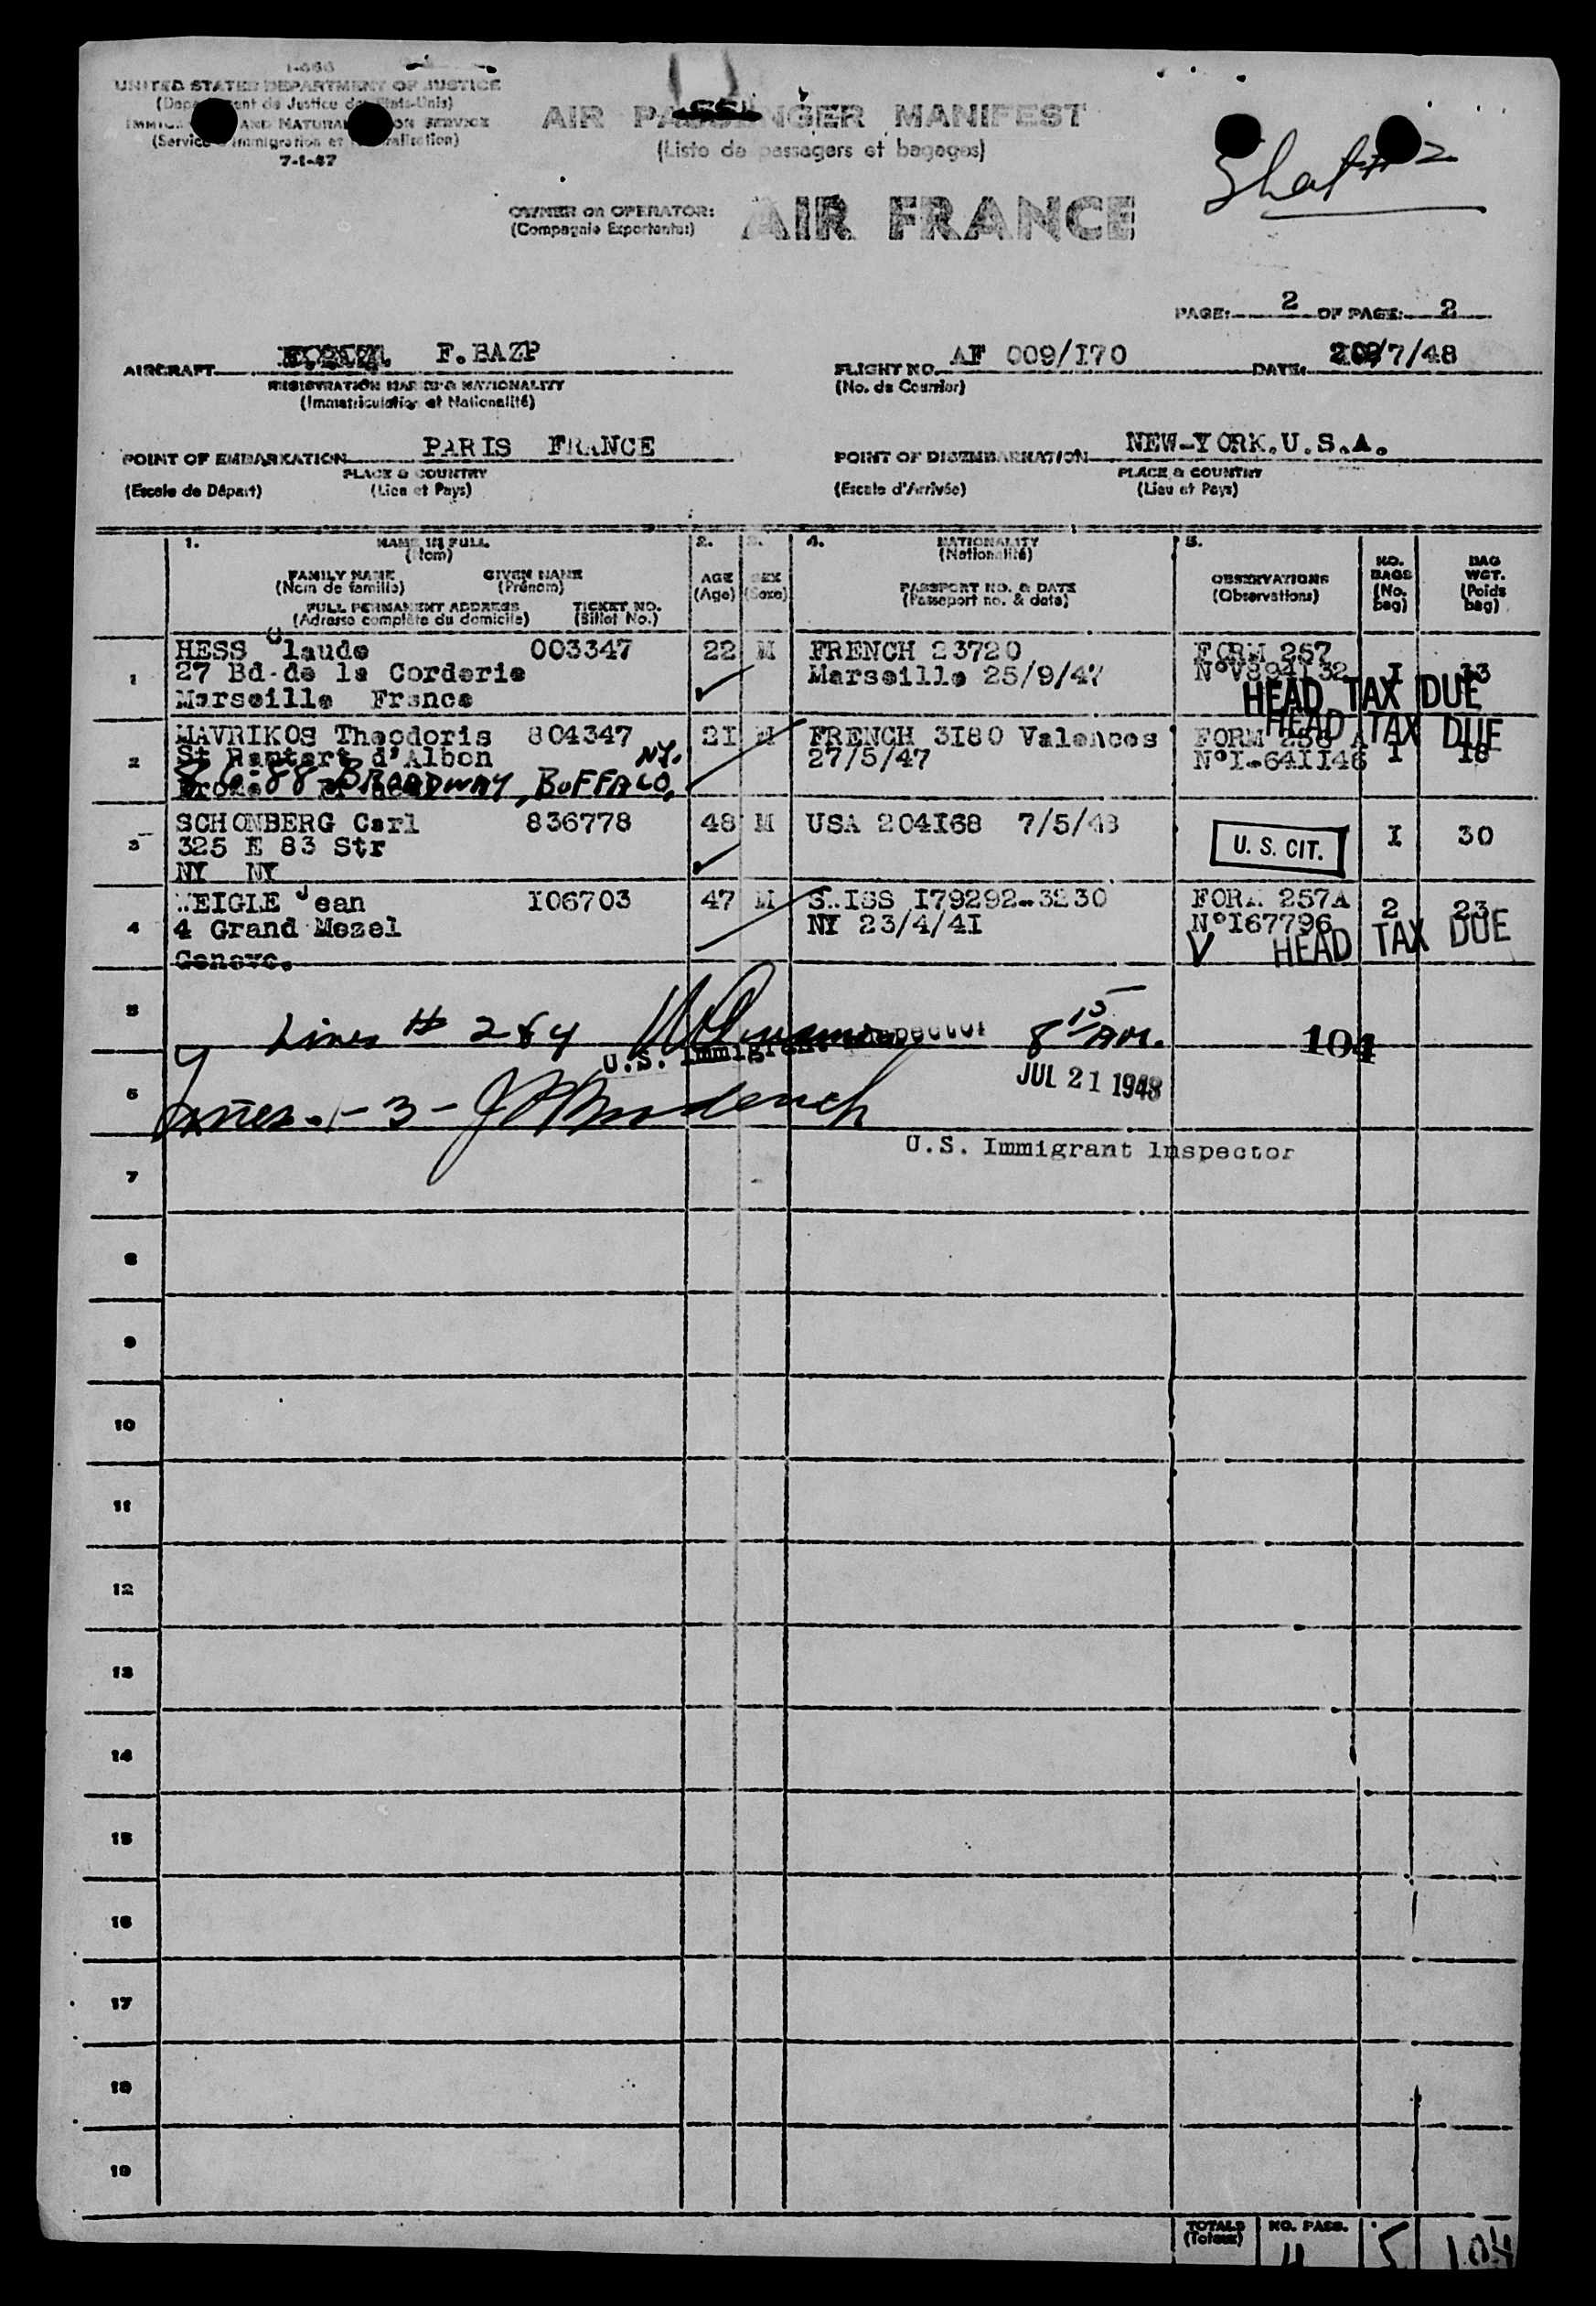 I-466
UNITED STATES DEPARTMENT OF JUSTICE
(Département de Justice des Etats-Unis)
IMMIGRATION AND NATURALIZATION SERVICE
(Service d'Immigration et Naturalisation)
7-1-47
AIR PASSENGER MANIFEST
(Liste de passagers et bagages)
OWNER OR OPERATOR: AIR FRANCE
(Compagnie Exportante:)
PAGE: 2 OF PAGE: 2
AIRCRAFT F.BAZP
REGISTRATION MARKS & NATIONALITY
(Immatriculation et Nationalité)
FLIGHT NO. AF 009/I70 DATE: /7/48
(No. de Courrier)
POINT OF EMBARKATION PARIS FRANCE
PLACE & COUNTRY
(Escale de Départ) (Lieu et Pays)
POINT OF DISEMBARKATION NEW-YORK.U.S.A.
PLACE & COUNTRY
(Escale d'Arrivée) (Lieu et Pays)
1. NAME IN FULL (Nom)
FAMILY NAME (Nom de famille) GIVEN NAME (Prénom)
FULL PERMANENT ADDRESS (Adresse complète du domicile) TICKET NO. (Billet No.)
2. AGE (Age)
3. SEX (Sexe)
4. NATIONALITY (Nationalité)
PASSPORT NO. & DATE (Passeport no. & date)
5. OBSERVATIONS (Observations)
NO. BAGS (No. bag)
BAG WGT. (Poids bag)
1 HESS Claude 003347 22 M FRENCH 23720 FORM 257 I 13
27 Bd-de la Corderie Marseille 25/9/47 N°V894I32
Marseille France HEAD TAX DUE
2 MAVRIKOS Theodoris 804347 2I M FRENCH 3I80 Valences FORM 256 A I 18
St Rambert d'Albon NY. 27/5/47 N°I-64II46 HEAD TAX DUE
BROADWAY, BUFFALO,
3 SCHONBERG Carl 836778 48 M USA 204I68 7/5/48 U. S. CIT. I 30
325 E 83 Str
NY NY
4 WEIGLE Jean I06703 47 M SWISS I79292-3230 FORM 257A 2 23
4 Grand Mezel NY 23/4/4I N°I67796
Geneve. V HEAD TAX DUE
5 Lines # 2 & 4 8 15 AM. 104
U.S. Immigrant Inspector
JUL 21 1948
6 Lines - 1 - 3 -
U.S. Immigrant Inspector
7
8
9
10
11
12
13
14
15
16
17
18
19
TOTALS (Totaux) NO. PASS. 4 5 104